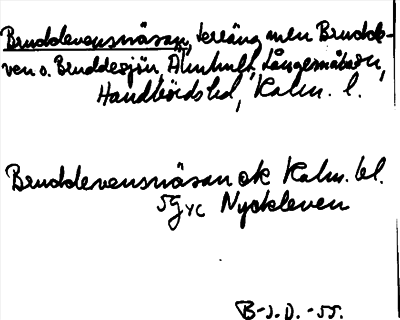 Bruddevensnäsan, terräng mell Brudde-
ven o. Bruddesjön, Älmhult, Långemåla sn,
Handbörds hd, Kalm. l.
Bruddevensnäsan ek Kalm. bl.
5g yc Nyckleven
B-J.D.-55.